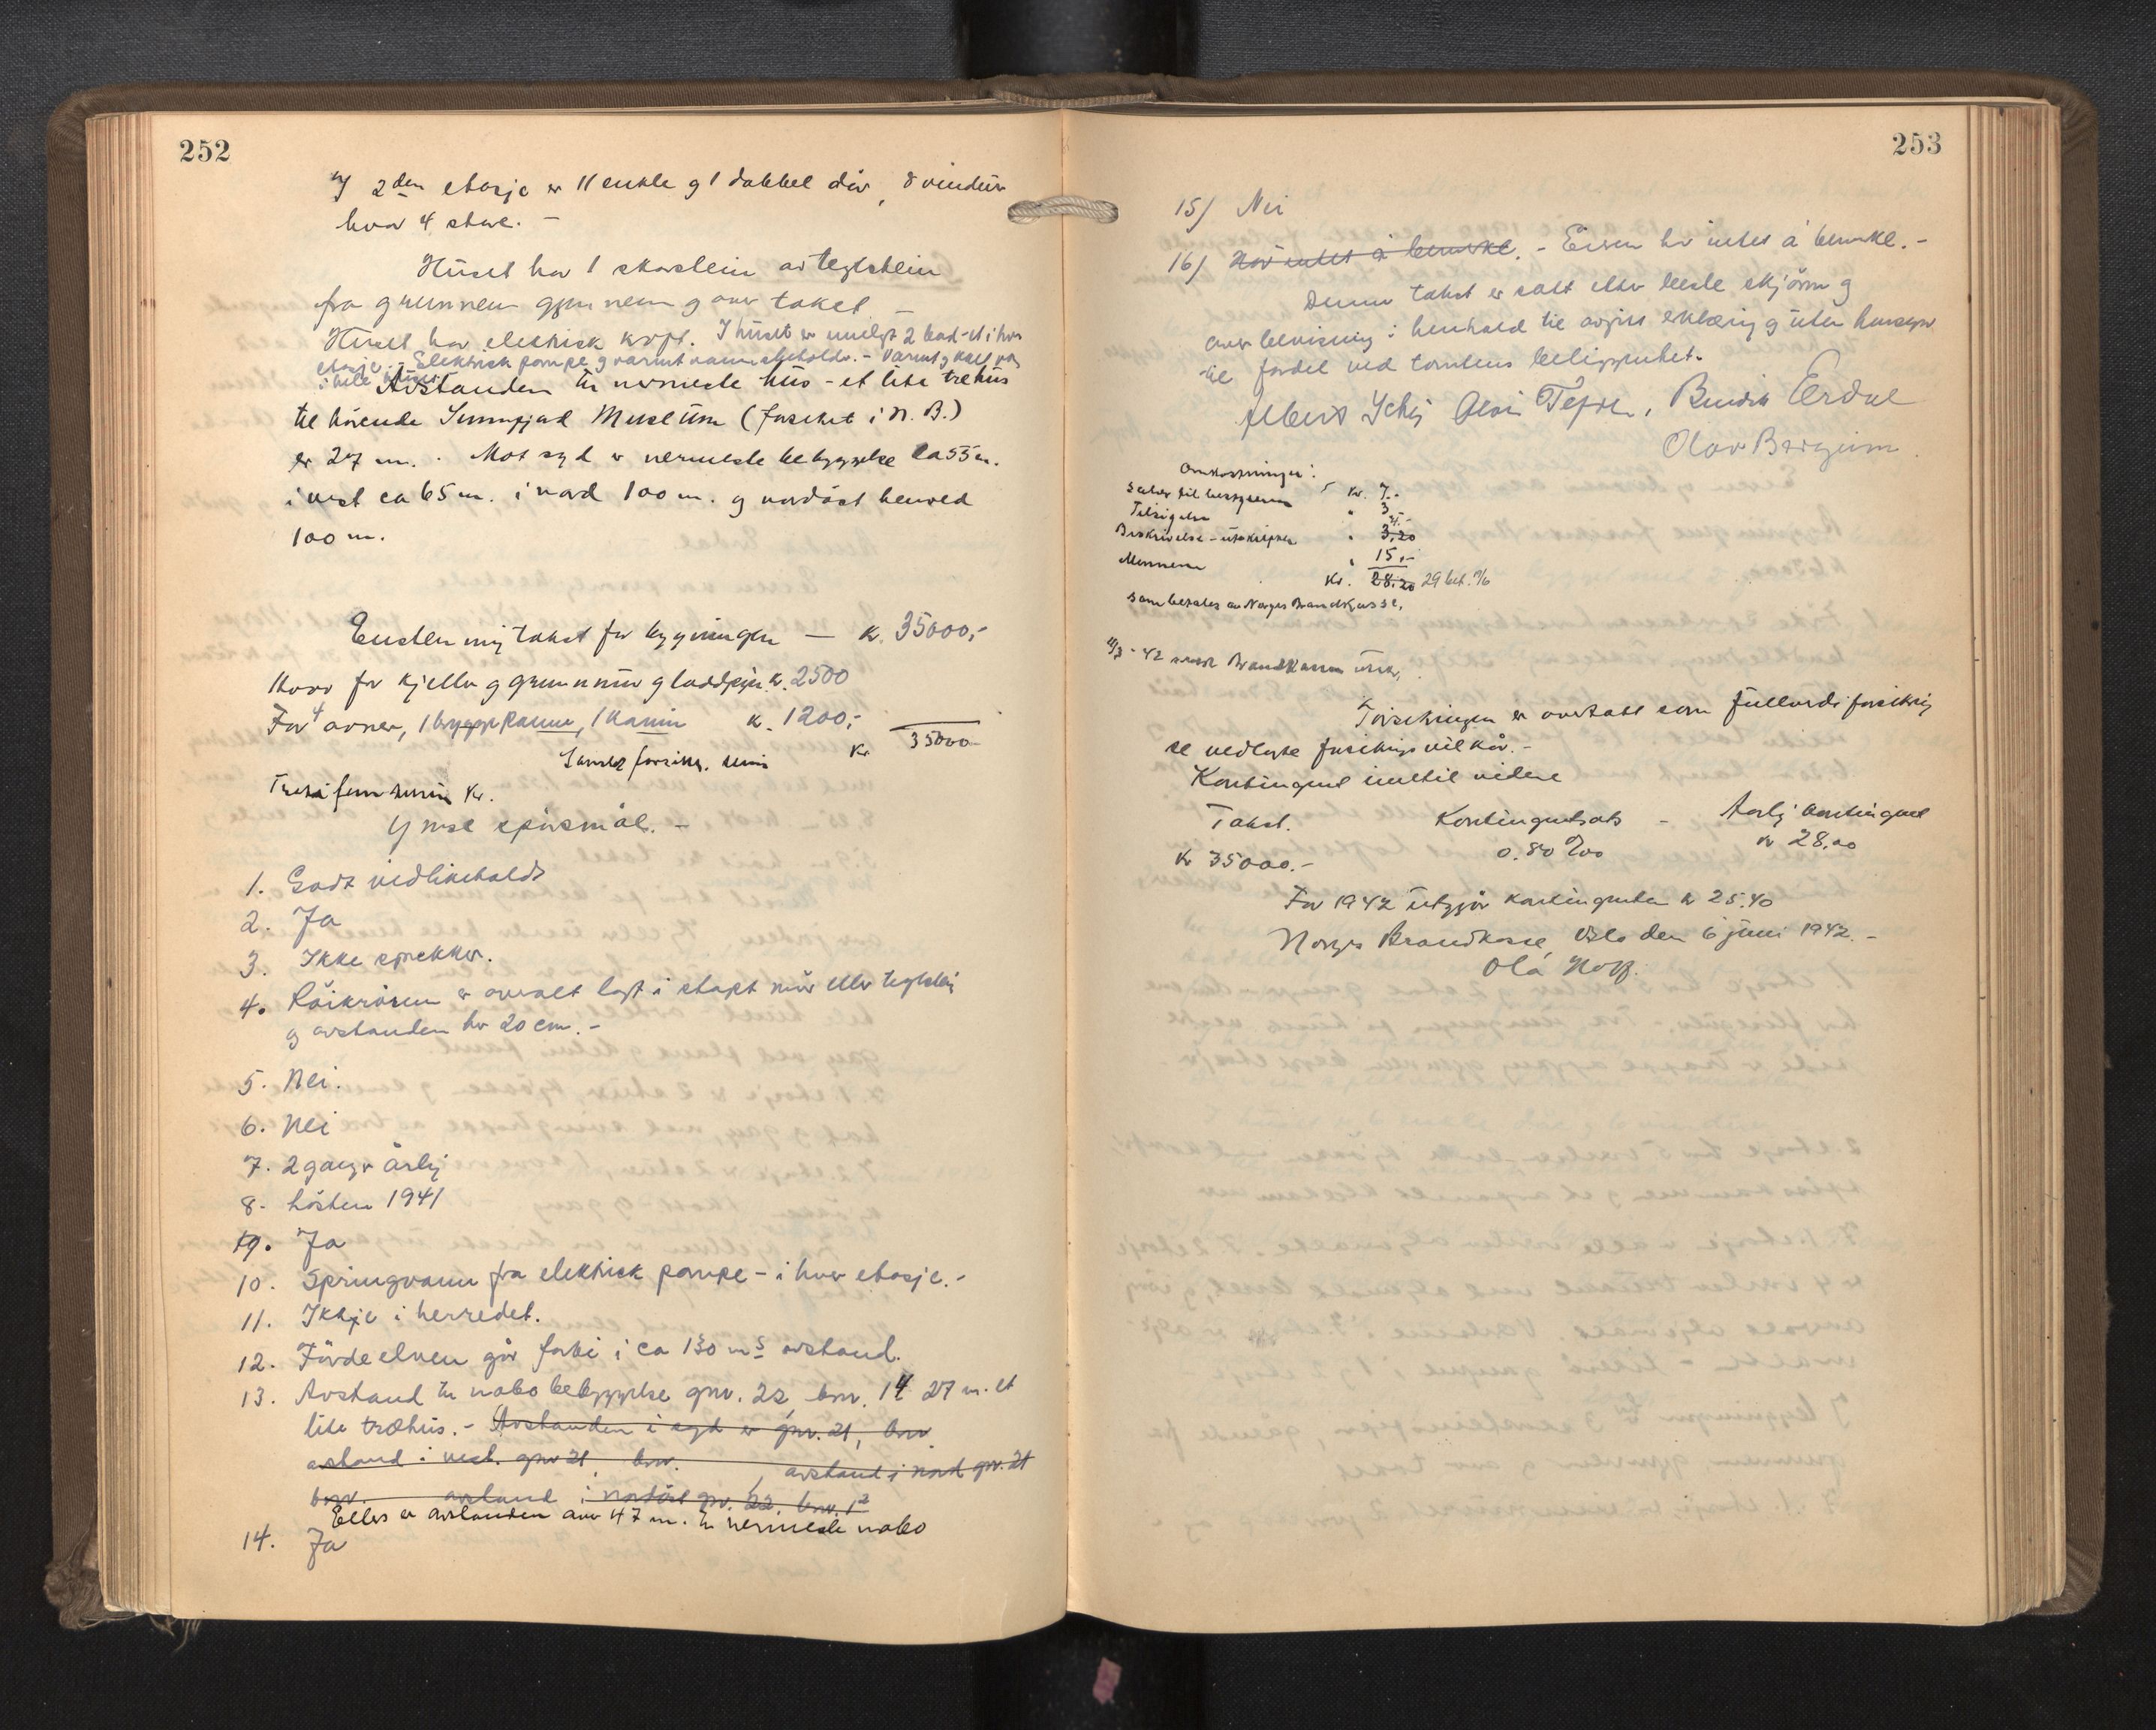 252
I 2den etasje er 11 enkle g 1 dobbel dör, 8 vindur
hver 4 store. -
Huset har 1 skorstein av teglstein
fra grunnen gjennem g over taket -
Huset har elektrisk kraft. I huset er innlagt 2 bad - et i hver
etasje. Elektrisk pumpe g varmt vannsbeholder. - Varmt g kalt van
i hele huset
Avstanden til nærmeste hus - et lite trehus
tilhörende Sunnfjord Museum (forsikret i N. B.)
er 27 m. . Mot syd er nærmeste bebyggelse ca 55 m.
i vest ca 65 m. i nord 100 m. g nordöst henved
100 m.
Enstemmig takst for bygningen — kr. 35000,-
Hvorav for kjeller g grunnmur g kr. 2500
For 4 ovner, 1 bryggepanne, 1 kamin kr. 1200,-
Samlet forsikr. sum kr 35000-
Tretti fem tusin kr.
Ymse spörsmål. -
1. Godt vedlikeholdt
2. Ja
3. Ikke sprekker.
4. Röikrören er overalt lagt i stöpt mur eller teglstein
g avstanden hr 20 cm. -
5. Nei.
6. Nei
7. 2 ganger årlig
8. hösten 1941
9. Ja
10. Springvann fra elektrisk pumpe - i hver etasje. -
11. Ikkje i herredet.
12. Fördeelven går forbi i ca 130 ms avstand.
13. Avstand til nabobebyggelse gnr. 22, bnr. 14 27 m. et
lite træhus. - Avstanden i syd er gnr. 21, bnr
avstand i vest. gnr 21 bnr. , avstand i nord gnr. 21
bnr. avstand i nordöst gnr. 22, bnr. 12
Ellers er avstanden over 47 m. til nærmeste nabo
14. Ja
253
15) Nei
16) Har intet å bemerke. - Eieren hr intet å bemerke. -
Denne takst er satt etter beste skjönn g
overbevisning i henhold til avgitt erklæring g uten hensyn
til fordel ved tomtens beliggenhet.
Albert Olai Bendik Erdal
Olav Bergum.
Omkostninger:
Saker til Kr. 7.-
Tilsigelse " 3,-
Beskrivelse - utskriften " 3.20
Mennene " 15,-
Kr. 28.20 29 bet. 9/6
som betales av Norges Brandkasse.
11/3 - 42 sendt Brandkassen utsk.
Forsikringen er overtatt som fullverdiforsikring
se vedlagte forsikringsvilkår. -
Kontingent inntil videre
Takst. Kontingentsats - Aarlig kontingent
kr 35000.- 0.80 ‰ kr 28.00
For 1942 utgjör kontingenten kr 25.40
Norges Brandkasse, Oslo den 6 juni 1942. -
Ola